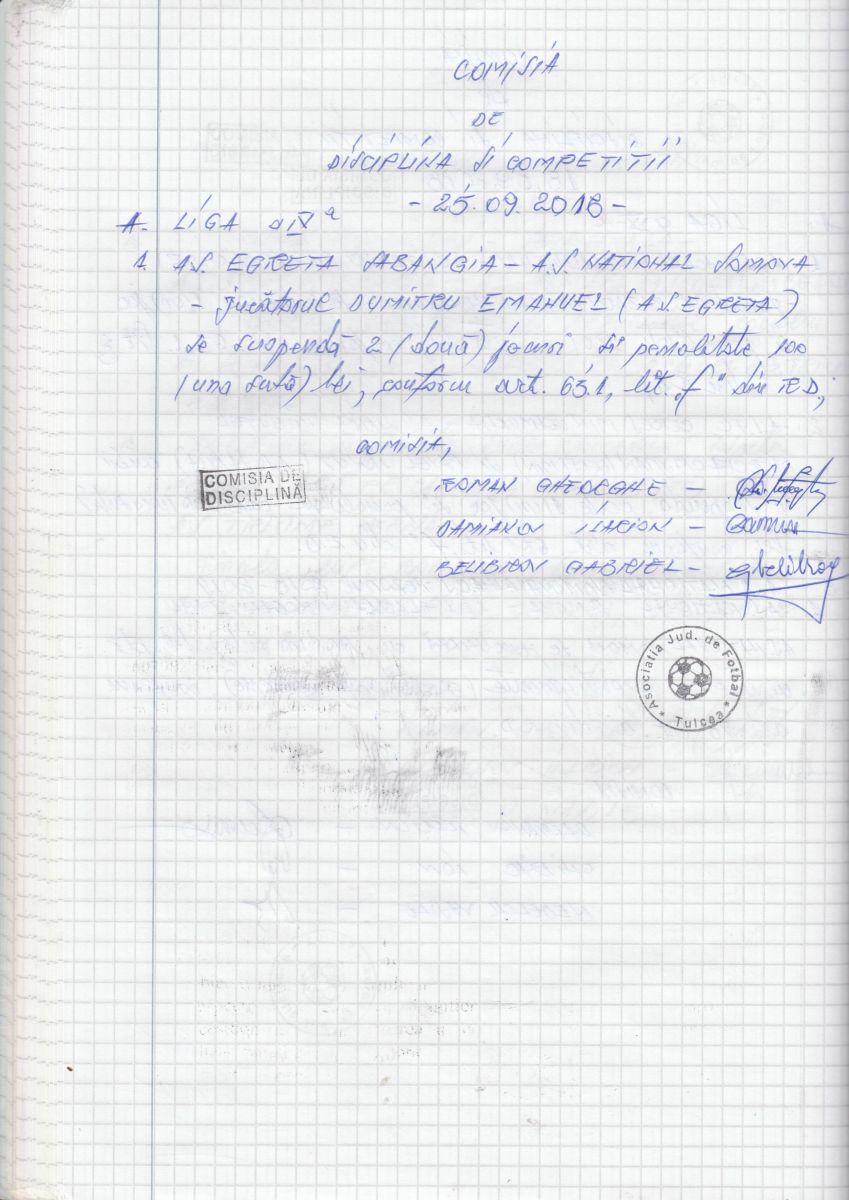 COMISIA
DE
DISCIPLINA SI COMPETITII
- 25.09.2018 -
A. LIGA a IV a
1. A.S. EGRETA SABANGIA - A.S. NATIONAL SOMOVA
- jucătorul DUMITRU EMANUEL (A.S. EGRETA)
se suspendă 2 (două) jocuri si penalitate 100
(una sută) lei, conform art. 63.1, lit. „f" din R.D.;
COMISIA,
COMISIA DE
DISCIPLINĂ
ROMAN GHEORGHE -
DAMIANOV ILARION -
BELIBION GABRIEL -
Asociatia Jud. de Fotbal
* Tulcea *